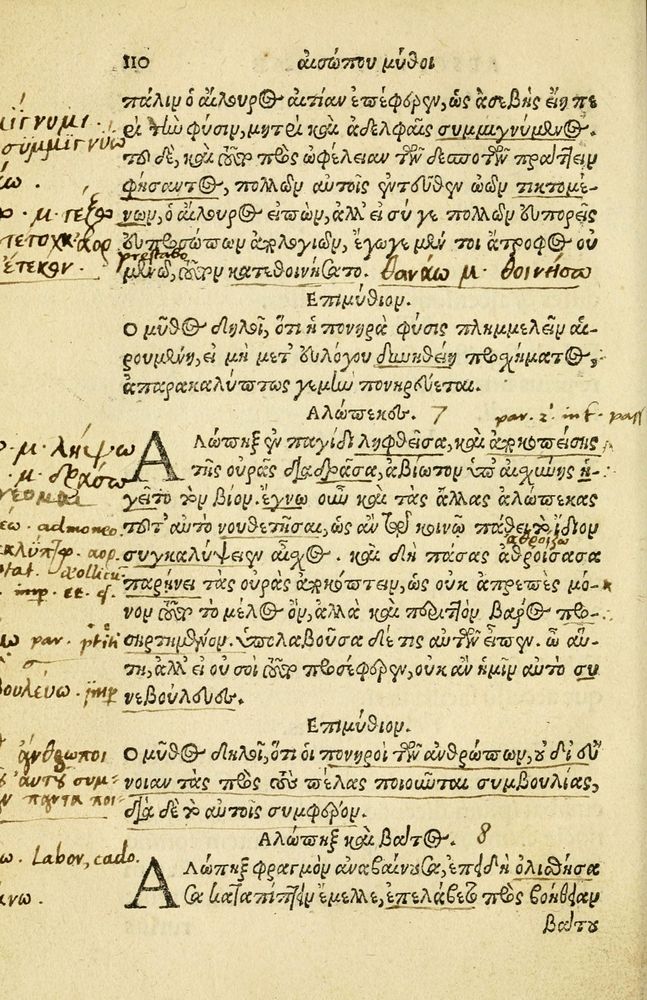 110 αἰσώπου μῦθοι
πάλιν ὁ αἴλουρος αἰτίαν ἐπέφερεν, ὡς ἀσεβὴς εἴη πε
ρὶ τὴν φύσιν, μητρὶ καὶ ἀδελφαῖς συμμιγνύμενος.
τοῦ δὲ, καὶ τοῦτο πρὸς ὠφέλειαν τῶν δεσποτῶν πράττειν
φήσαντος, πολλῶν αὐτοῖς ἐντεῦθεν ὠῶν τικτομέ-
νων, ὁ αἴλουρος εἰπὼν, ἀλλ' εἰ σύ γε πολλῶν εὐπορεῖς
εὐπροσώπων ἀπολογιῶν, ἔγωγε μέν τοι ἄτροφος οὐ
μενῶ, τοῦτον κατεθοινήσατο. θανάω μ. θοινήσω
Επιμύθιον.
Ο μῦθος δηλοῖ, ὅτι ἡ πονηρὰ φύσις πλημμελεῖν αἱ-
ρουμένη, εἰ μὴ μετ' εὐλόγου δυνηθείη προσχήματος,
ἀπαρακαλύπτως γε μὴν πονηρεύεται.
Αλώπηξ. 7 par. 2. inf. pass
Αλώπηξ ἐν παγίδι ληφθεῖσα, καὶ ἀποκοπείσης
τῆς οὐρᾶς διαδρᾶσα, ἀβίωτον ὑπ' αἰσχύνης ἡ-
γεῖτο τὸν βίον. ἔγνω οὖν καὶ τὰς ἄλλας ἀλώπεκας
τοῦτ' αὐτὸ νουθετῆσαι, ὡς ἂν τῷ κοινῷ πάθει τὸ ἴδιον
ἀθροίζω
συγκαλύψειεν αἶσχος. καὶ δὴ πάσας ἀθροίσασα
παρῄνει τὰς οὐρὰς ἀποκόπτειν, ὡς οὐκ ἀπρεπὲς μό-
νον τοῦτο τὸ μέλος ὂν, ἀλλὰ καὶ περιττὸν βάρος προ-
σηρτημένον. ὑπολαβοῦσα δέ τις αὐτῶν εἶπεν. ὦ αὕ-
τη, ἀλλ' εἰ οὐ σοὶ τοῦτο προσέφερεν, οὐκ ἂν ἡμῖν αὐτὸ συ
νεβούλευες.
Επιμύθιον.
Ο μῦθος δηλοῖ, ὅτι οἱ πονηροὶ τῶν ἀνθρώπων, οὐ δι' εὔ
νοιαν τὰς πρὸς τοὺς πέλας ποιοῦνται συμβουλίας,
διὰ δὲ τὸ αὐτοῖς συμφέρον.
Αλώπηξ καὶ Βάτος. 8
Αλώπηξ φραγμὸν ἀναβαίνουσα, ἐπειδὴ ὀλισθήσα
σα καταπίπτειν ἔμελλε, ἐπελάβετο πρὸς βοήθειαν
βάτου
μίγνυμι.
συμμιγνύω
ἔτεκον.
μ. λήψω
μ. δράσω
admoneo
aor.
imp.
par.
βουλεύω. imp
ἄνθρωποι
Labor, cado.